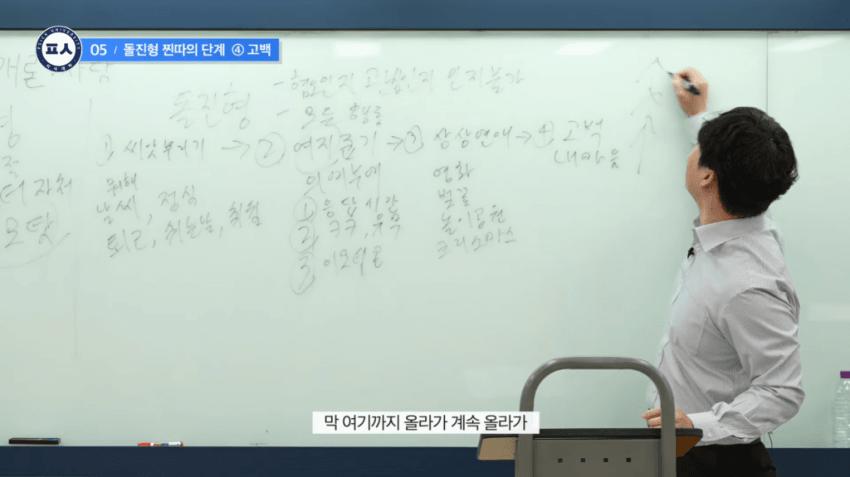 프사
05 / 돌진형 찐따의 단계 ④ 고백
돌진형
- 혐오인지 고백인지 인지불가
- 모든 행동
① 씨앗뿌리기 → ② 여지줍기 → ③ 상상연애 → ④ 고백
내마음
뭐해
날씨, 점심
퇴근, 쉬는날, 취침
의미부여
① 응답시간
② ㅋㅋ, ㅠㅠ
③ 이모티콘
영화
벚꽃
놀이공원
크리스마스
자처
막 여기까지 올라가 계속 올라가